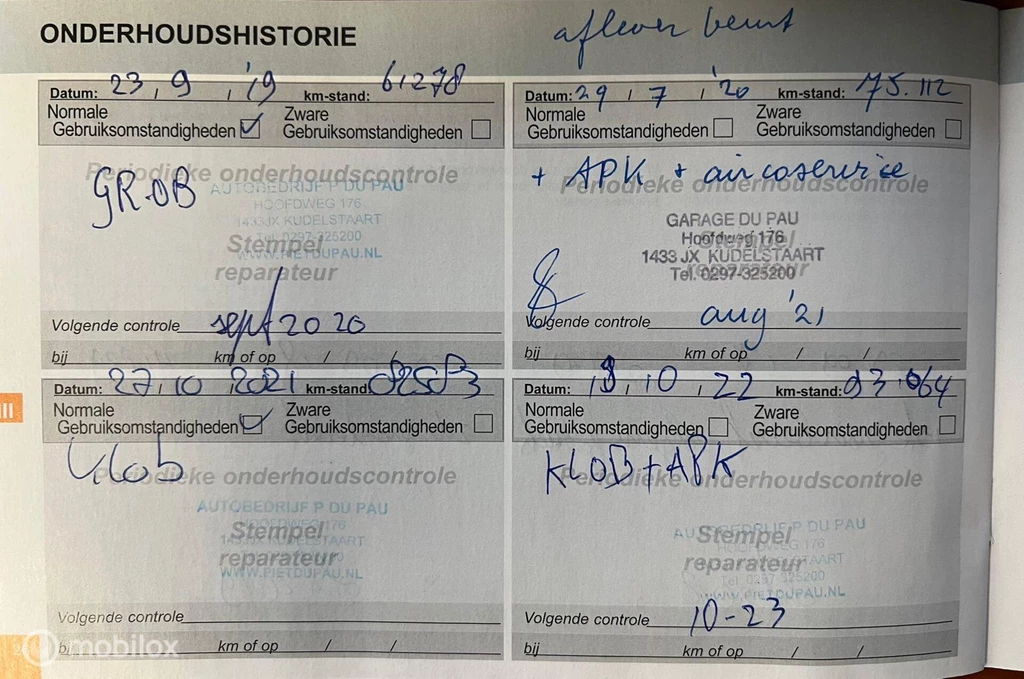 ONDERHOUDSHISTORIE
aflever beurt
Datum: 23 / 9 / '19 km-stand: 61278
Normale Gebruiksomstandigheden
Zware Gebruiksomstandigheden
Periodieke onderhoudscontrole
GR.OB
AUTOBEDRIJF P DU PAU
HOOFDWEG 176
1433JX KUDELSTAART
Tel. 0297-325200
WWW.PIETDUPAU.NL
Stempel
reparateur
Volgende controle sept 2020
bij km of op / /
Datum: 29 / 7 / '20 km-stand: 75.112
Normale Gebruiksomstandigheden
Zware Gebruiksomstandigheden
+ APK + aircoservice
Periodieke onderhoudscontrole
GARAGE DU PAU
Hoofdweg 176
1433 JX KUDELSTAART
Tel. 0297-325200
Stempel
reparateur
Volgende controle aug '21
bij km of op / /
III
Datum: 27.10 2021 km-stand:
Normale Gebruiksomstandigheden
Zware Gebruiksomstandigheden
klob
Periodieke onderhoudscontrole
AUTOBEDRIJF P DU PAU
HOOFDWEG 176
KUDELSTAART
WWW.PIETDUPAU.NL
Stempel
reparateur
Volgende controle
bij km of op / /
Datum: 10 , 22 km-stand: 93.064
Normale Gebruiksomstandigheden
Zware Gebruiksomstandigheden
KLOB + APK
Periodieke onderhoudscontrole
AUTOBEDRIJF P DU PAU
HOOFDWEG 176
KUDELSTAART
Tel. 0297 325200
WWW.PIETDUPAU.NL
Stempel
reparateur
Volgende controle 10-23
bij km of op / /
mobilox